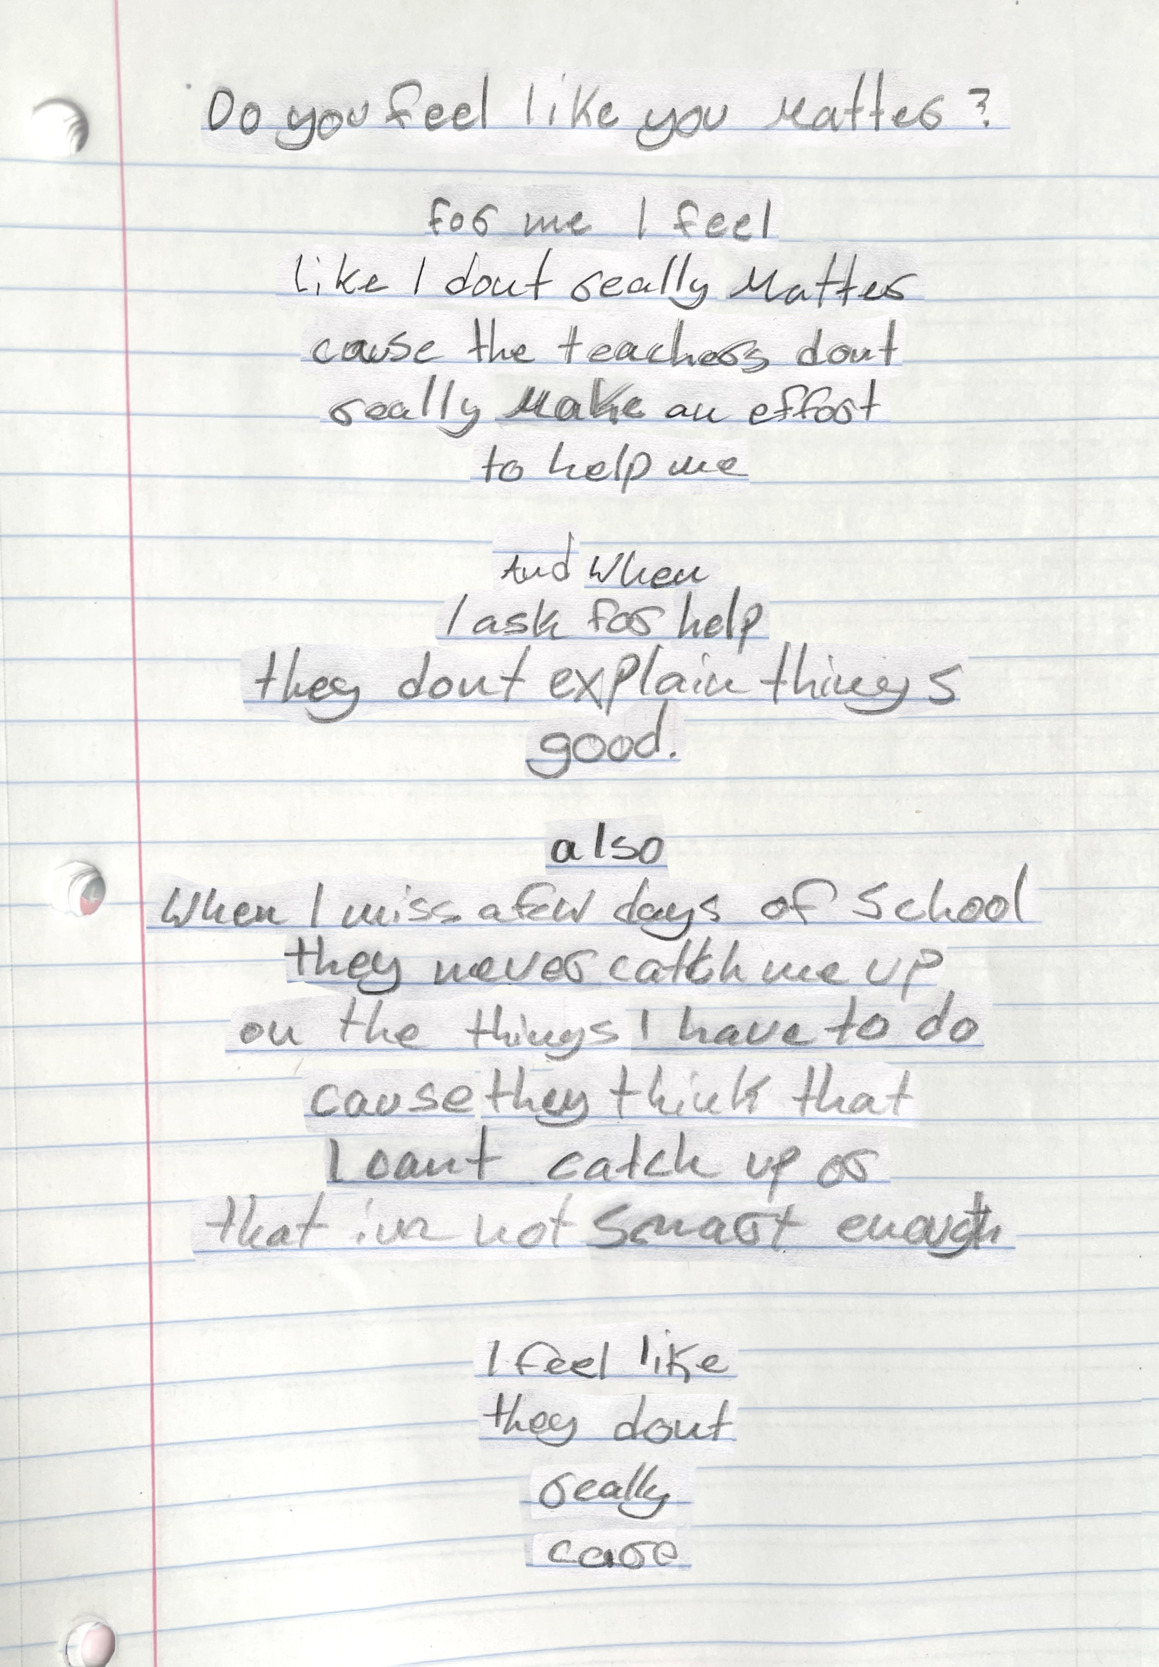 Do you feel like you Matter?
for me I feel
like I dont really Matter
cause the teachers dont
really Make an effort
to help me
And When
I ask for help
they dont explain things
good.
also
When I miss a few days of School
they never catch me up
on the things I have to do
cause they think that
I cant catch up or
that im not smart enough
I feel like
they dont
really
care